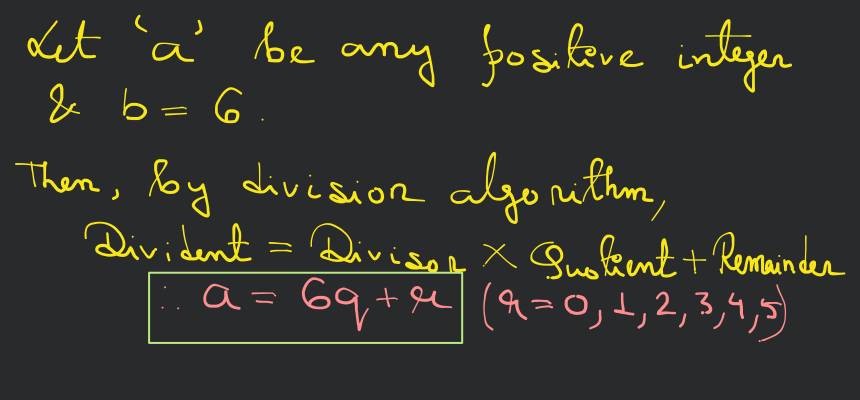 Let 'a' be any positive integer
& b = 6.
Then, by division algorithm,
Divident = Divisor × Quotient + Remainder
∴ a = 6q + r (r = 0, 1, 2, 3, 4, 5)